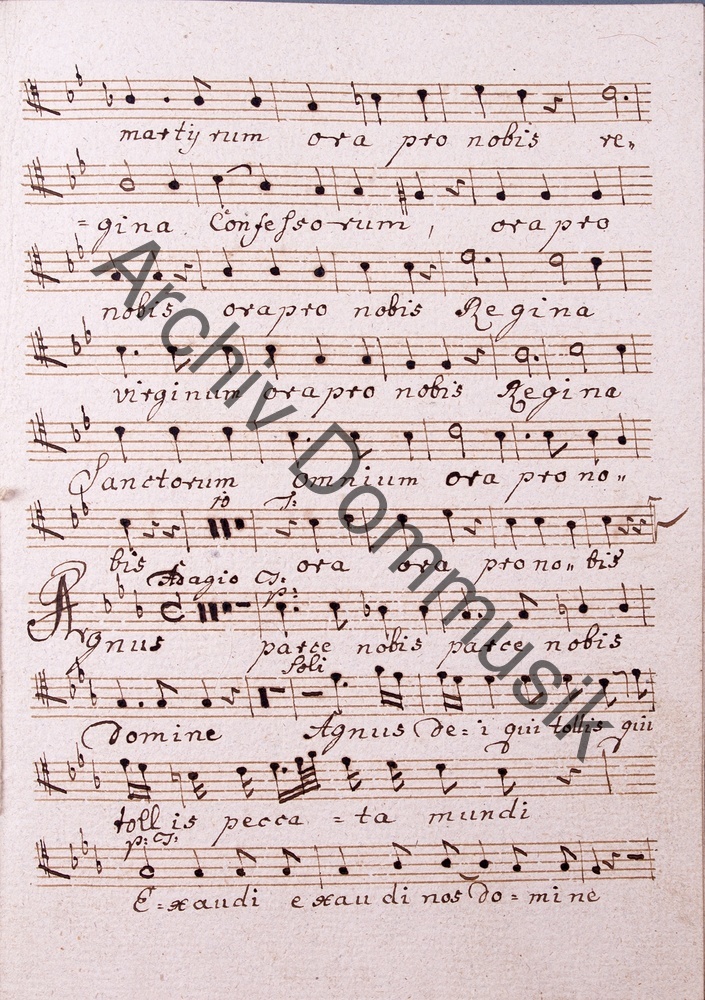 martyrum ora pro nobis re„
=gina Confessorum, ora pro
nobis ora pro nobis Regina
virginum ora pro nobis Regina
Sanctorum omnium ora pro no„
10 T:
bis ora ora pro no„bis
Adagio T: p:
Agnus parce nobis parce nobis
Soli
Domine Agnus De=i qui tollis qui
tollis pecca=ta mundi
p: T:
E=xaudi exaudi nos Do=mine
Archiv Dommusik